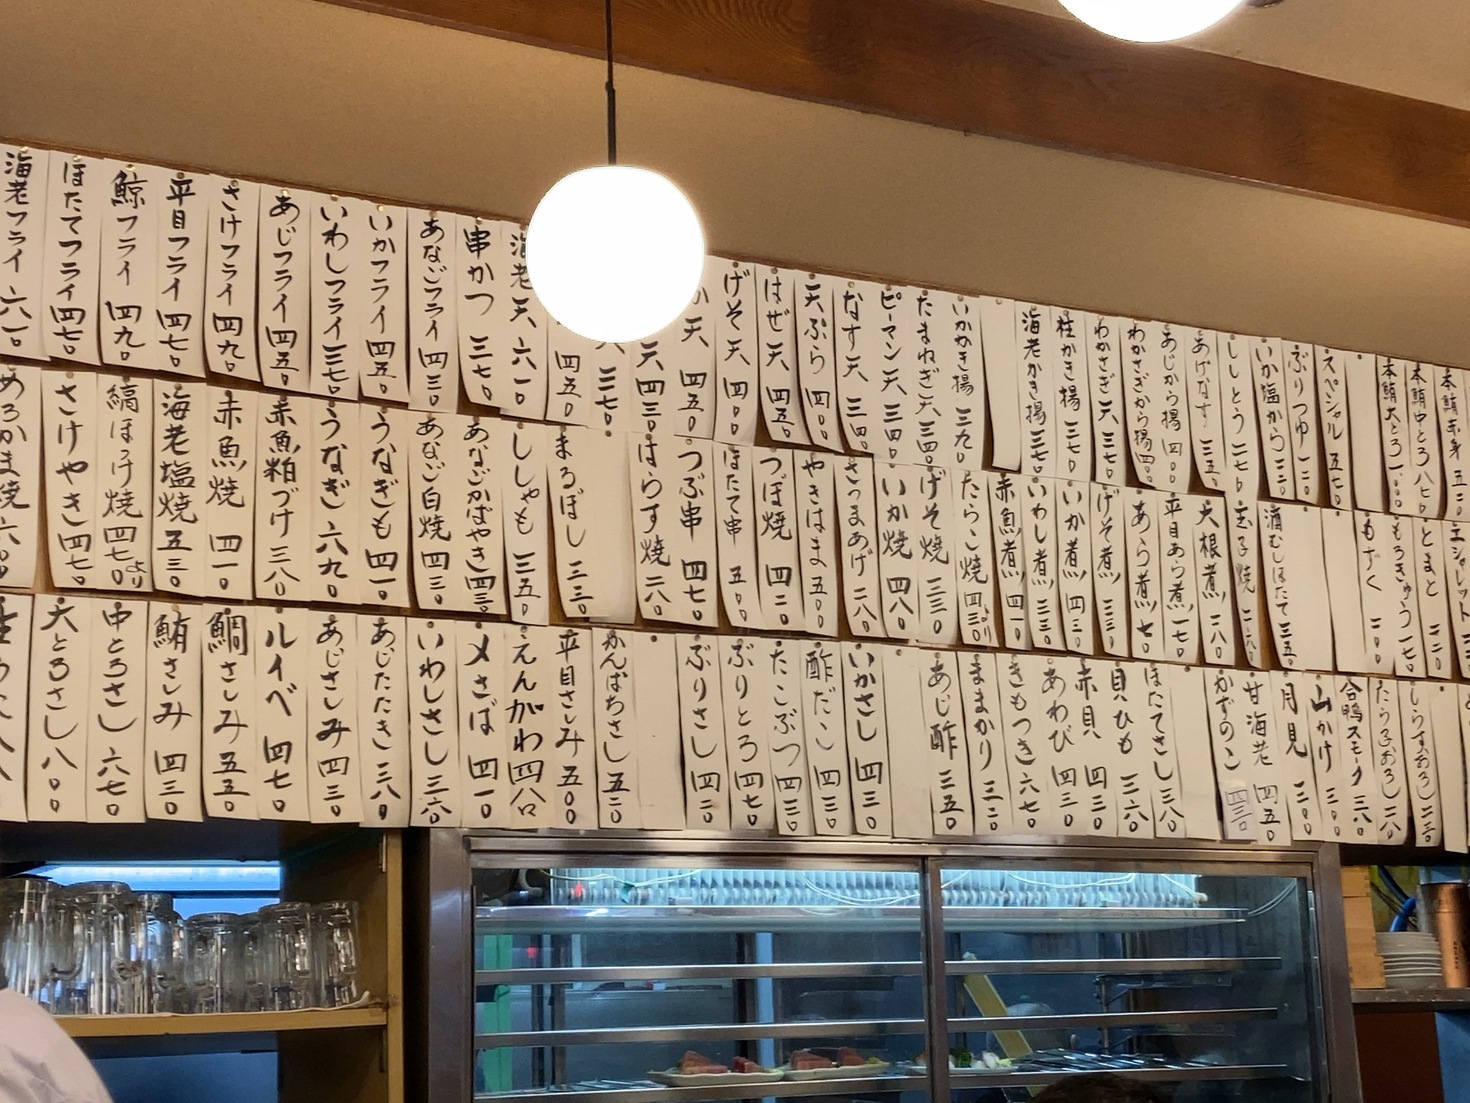 本鮪赤身
本鮪中とろ 八七〇
本鮪大とろ 一〇〇〇
スペシャル 五七〇
ぶりつゆ 一二〇
いか塩から 三二〇
ししとう 二七〇
あげなす 三五〇
あじから揚 四〇〇
わかさぎから揚 四〇〇
わかさぎ天 三七〇
桂かき揚 三七〇
海老かき揚 三七〇
いかかき揚 三九〇
たまねぎ天 三四〇
ピーマン天 三四〇
なす天 三四〇
天ぷら 四〇〇
はぜ天 四五〇
げそ天 四〇〇
天 四五〇
天 四三〇
三七〇
四五〇
海老天 六一〇
串かつ 三七〇
あなごフライ 四三〇
いかフライ 四五〇
いわしフライ 三七〇
あじフライ 四五〇
さけフライ 四九〇
平目フライ 四七〇
鯨フライ 四九〇
ほたてフライ 四七〇
海老フライ 六一〇
エシャレット
とまと 三二〇
もろきゅう 一七〇
もずく 二〇〇
酒むしほたて 三五〇
玉子焼 二六〇
大根煮 一八〇
平目あら煮 一七〇
あら煮
げそ煮 三三〇
いか煮 四三〇
いわし煮 三三〇
赤魚煮 四一〇
たらこ焼 四三〇より
げそ焼 三三〇
いか焼 四八〇
さつまあげ 二八〇
やきはま 五〇〇
つぼ焼 四二〇
ほたて串 五〇〇
つぶ串 四七〇
はらす焼 二八〇
まるぼし 三三〇
ししゃも 三五〇
あなごかばやき 四三〇
あなご白焼 四三〇
うなぎきも 四一〇
うなぎ 六九〇
赤魚粕づけ 三八〇
赤魚焼 四一〇
海老塩焼 五三〇
縞ほっけ焼 四七〇より
さけやき 四七〇
めろかま焼 六〇〇
しらすおろし 二三〇
たらこおろし 二八〇
合鴨スモーク 三六〇
山かけ 三〇〇
月見 三〇〇
甘海老 四五〇
かずのこ 四三〇
ほたてさし 三八〇
貝ひも 三六〇
赤貝 四三〇
あわび 四三〇
きもつき 六七〇
ままかり 三二〇
あじ酢 三五〇
いかさし 四三〇
酢だこ 四三〇
たこぶつ 四三〇
ぶりとろ 四七〇
ぶりさし 四二〇
かんぱちさし 五二〇
平目さしみ 五〇〇
えんがわ 四八〇
〆さば 四一〇
いわしさし 三六〇
あじたたき 三八〇
あじさしみ 四三〇
ルイベ 四七〇
鯛さしみ 五五〇
鮪さしみ 四三〇
中とろさし 六七〇
大とろさし 八〇〇